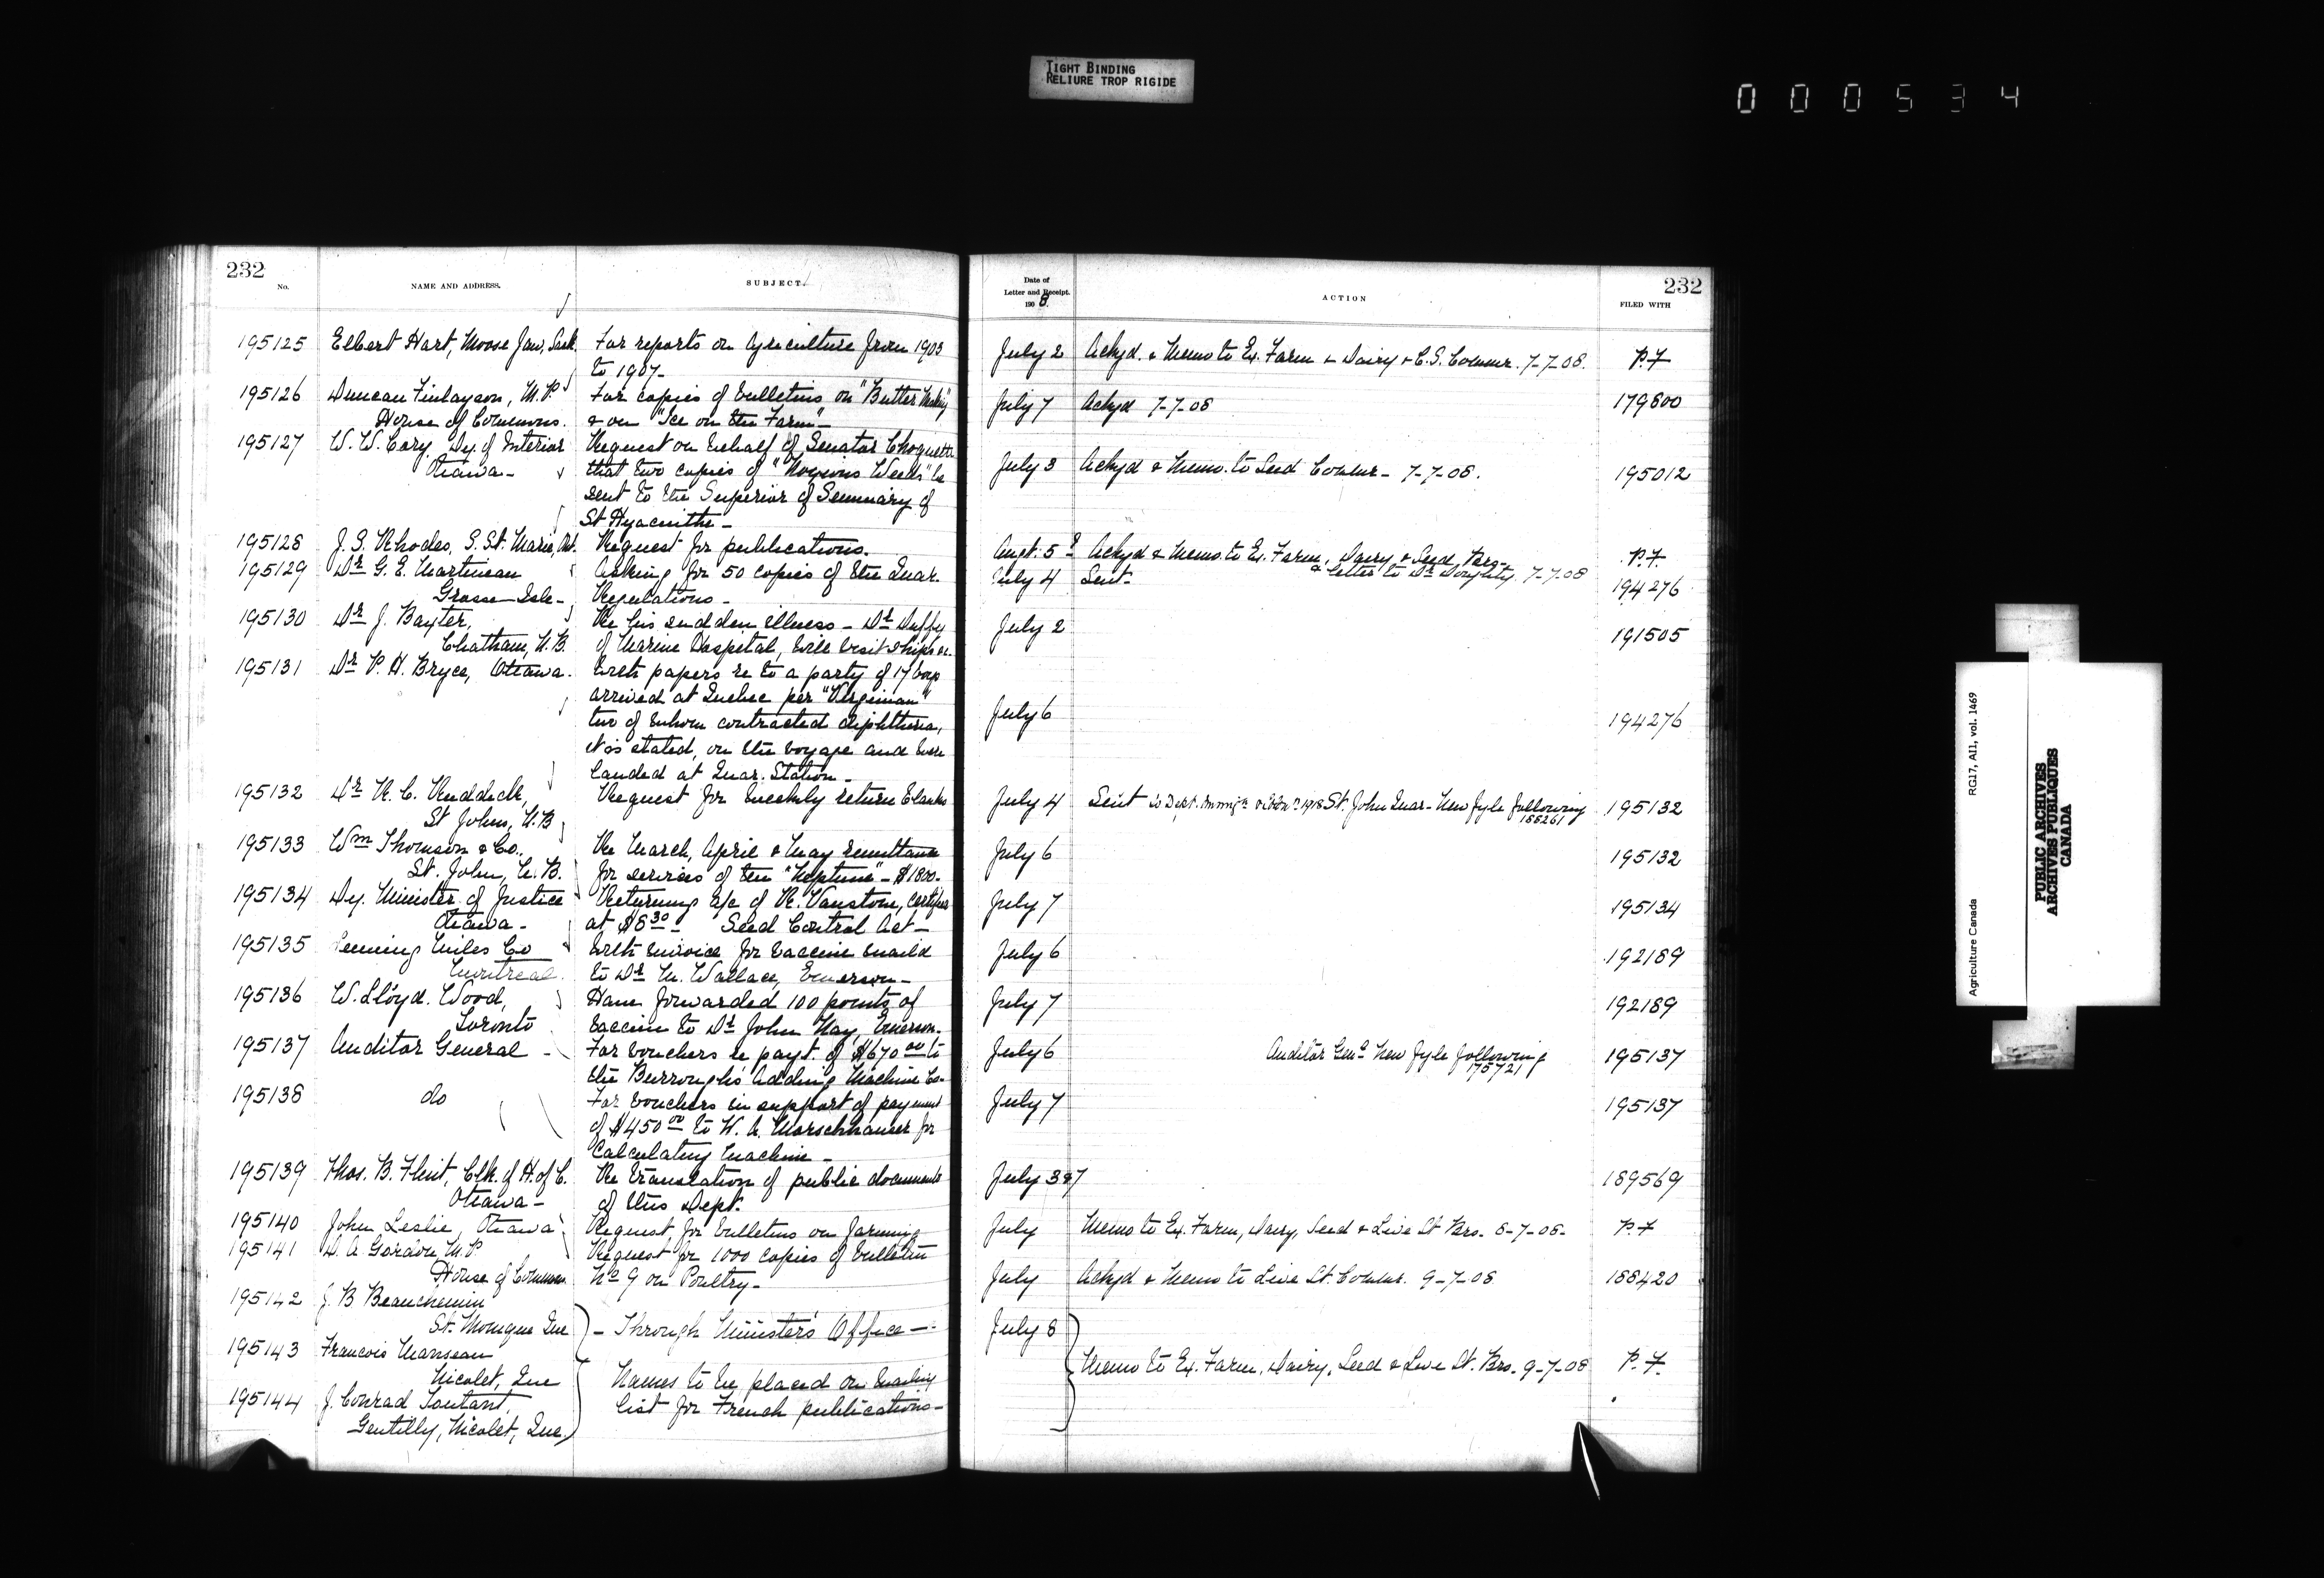 TIGHT BINDING
RELIURE TROP RIGIDE
000534
232
No.
NAME AND ADDRESS.
SUBJECT.
195125 Elbert Hart, Moose Jaw, Sask. For reports on Agriculture from 1903
to 1907-
195126 Duncan Finlayson, M.P. For copies of bulletins on "Butter Making"
House of Commons. & on "Ice on the Farm"-
195127 W. W. Cory, Dy. of Interior Request on behalf of Senator Choquette
Ottawa- that two copies of "Noxious Weeds" be
sent to the Superior of Seminary of
St Hyacinthe-
195128 J. S. Rhodes, S. St. Marie, Ont. Request for publications.
195129 Dr G. E. Martineau Asking for 50 copies of the Quar.
Grosse Isle- Regulations-
195130 Dr J. Baxter, Re his sudden illness - Dr Duffy
Chatham, N.B. of Marine Hospital, will visit ships
195131 Dr P. H. Bryce, Ottawa. With papers re to a party of 17 boys
arrived at Quebec per "Virginian"
two of whom contracted diphtheria,
it is stated, on the voyage and were
landed at Quar. Station-
195132 Dr R. C. Ruddick, Request for weekly return blanks
St Johns, N.B
195133 Wm Thomson & Co., Re March, April & May remittance
St. John, N.B. for services of the "Neptune" - $1800-
195134 Dy. Minister of Justice Returning a/c of R. Vanstone, certified
Ottawa- at $8.30- Seed Control Act-
195135 Leeming Miles Co With invoice for vaccine mailed
Montreal. to Dr M. Wallace, Emerson-
195136 W. Lloyd. Wood, Have forwarded 100 points of
Toronto vaccine to Dr John Hay, Emerson.
195137 Auditor General - For vouchers re payt. of $670.00 to
the Burroughs Adding Machine Co-
195138 do For vouchers in support of payment
of $450.00 to W. A. Morschhauser for
Calculating Machine-
195139 Thos. B. Flint, Clk. of H. of C. Re translation of public documents
Ottawa- of this Dept.
195140 John Leslie, Ottawa Request for bulletins on farming
195141 D. A. Gordon, M.P Request for 1000 copies of bulletin
House of Commons No 9 on Poultry-
195142 J. B Beauchemin
St. Monique Que - Through Minister's Office -
195143 Francois Manseau
Nicolet, Que Names to be placed on mailing
195144 J. Conrad Toutant, list for French publications-
Gentilly, Nicolet, Que.
Date of
Letter and Receipt.
1908.
ACTION
232
FILED WITH
July 2 Ackyd. & Memo to Ex. Farm & Dairy & C.S. Commr. 7-7-08. P.F
July 7 Ackyd 7-7-08 179800
July 3 Ackyd & Memo. to Seed Commr- 7-7-08. 195012
Augt. 5 ? Ackyd & Memo. to Ex. Farm, Dairy & Seed Brs- P.F
& letter to Dr Doughty. 7-7-08
July 4 Sent- 194276
July 2 191505
July 6 194276
July 4 Sent St. John Quar- New fyle following 195132
188261
July 6 195132
July 7 195134
July 6 192189
July 7 192189
July 6 Auditor Genl New fyle following 195137
175721
July 7 195137
July 3 & 7 189569
July Memo to Ex. Farm, Dairy, Seed & Live St Brs. 8-7-08- P.F
July Ackyd & Memo to Live St. Commr. 9-7-08 188420
July 8
Memo to Ex. Farm, Dairy, Seed & Live St. Brs. 9-7-08 P.F.
Agriculture Canada RG17, AII, vol. 1469
PUBLIC ARCHIVES
ARCHIVES PUBLIQUES
CANADA